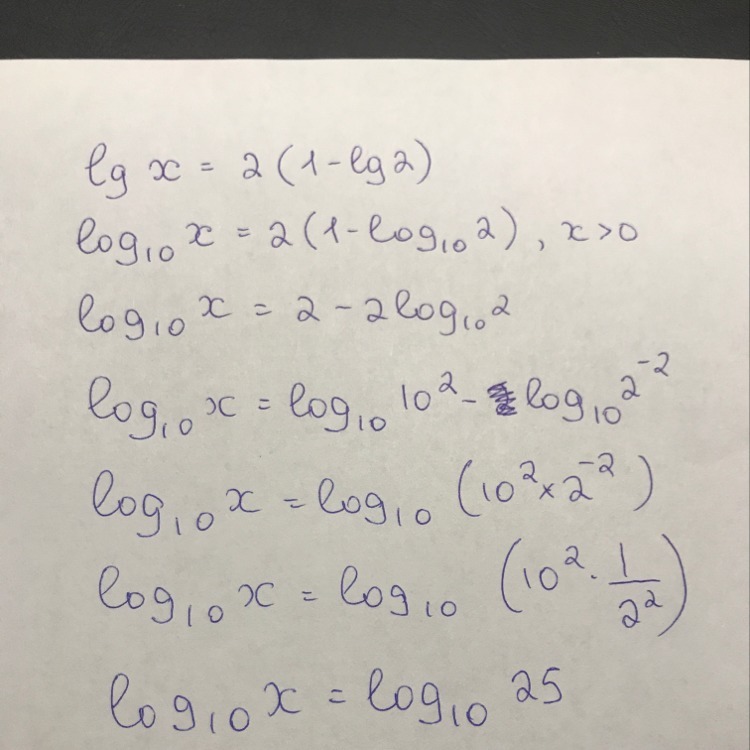 lg x = 2(1-lg2)
log₁₀ x = 2(1-log₁₀ 2), x>0
log₁₀ x = 2 - 2log₁₀ 2
log₁₀ x = log₁₀ 10² - log₁₀ 2⁻²
log₁₀ x = log₁₀ (10² × 2⁻²)
log₁₀ x = log₁₀ (10² · 1/2²)
log₁₀ x = log₁₀ 25